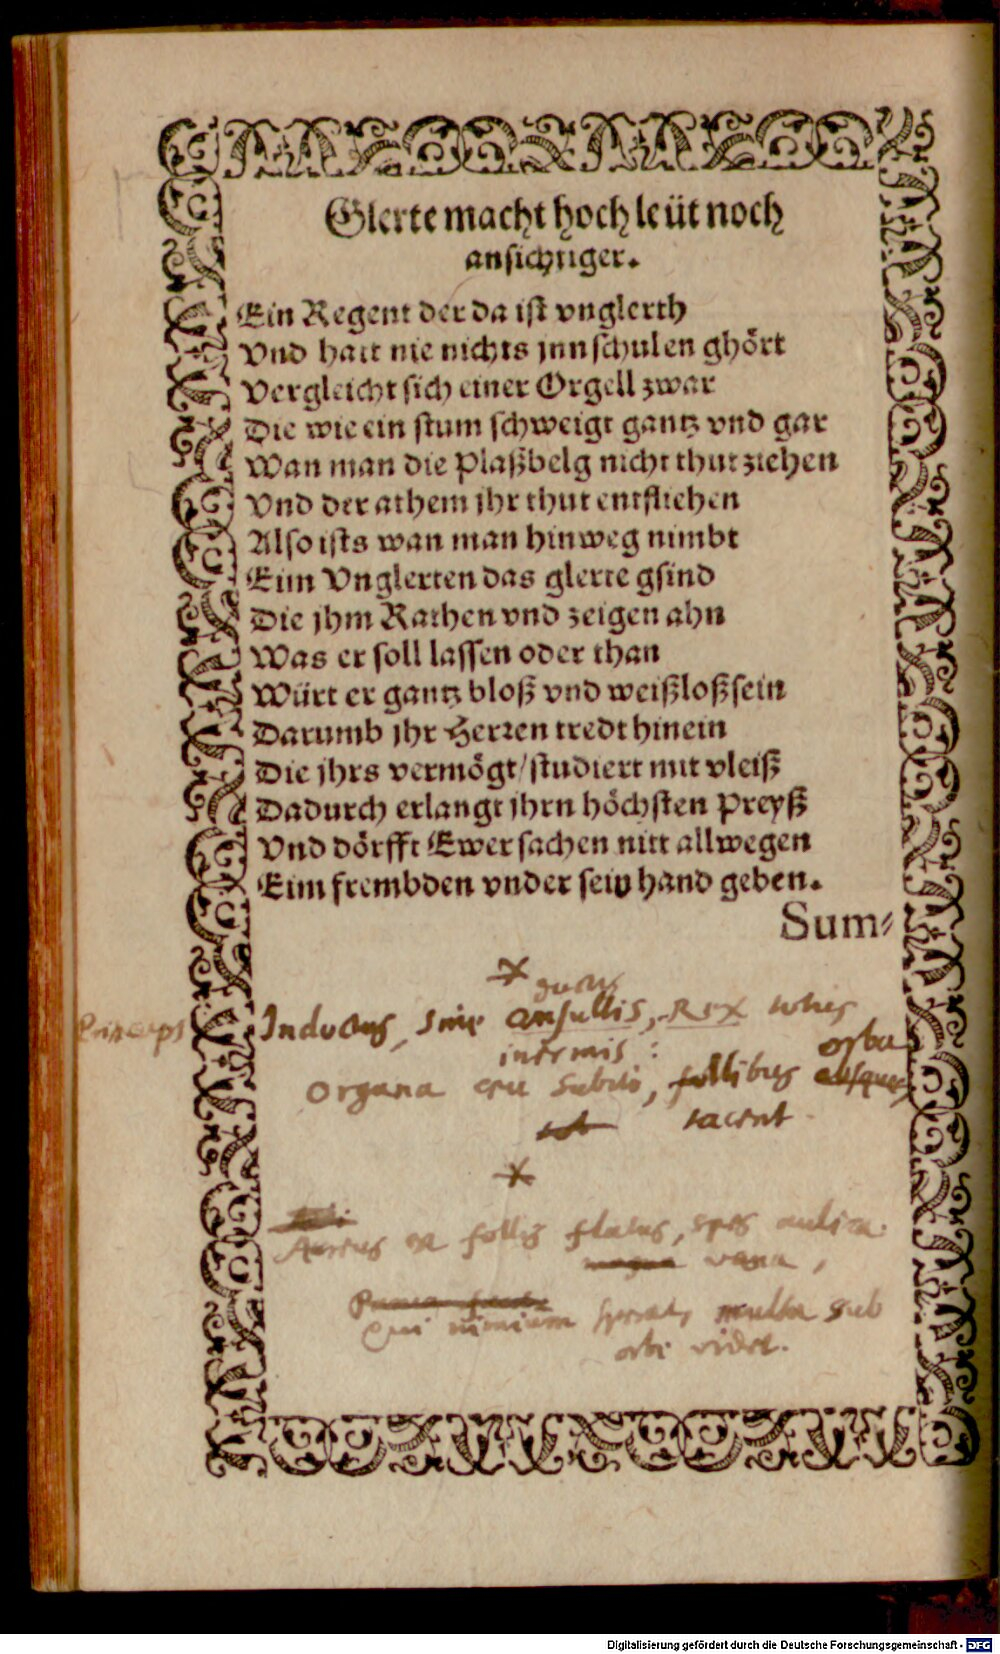 Glerte macht hoch leüt noch
ansichtiger.
Ein Regent der da ist vnglerth
Vnd hatt nie nichts jnn schulen ghört
Vergleicht sich einer Orgell zwar
Die wie ein stum schweigt gantz vnd gar
Wan man die Plaßbelg nicht thut ziehen
Vnd der athem jhr thut entfliehen
Also ists wan man hinweg nimbt
Eim Vnglerten das glerte gsind
Die jhm Rathen vnd zeigen ahn
Was er soll lassen oder than
Würt er gantz bloß vnd weißloß sein
Darumb jhr Herren tredt hinein
Die jhrs vermögt/studiert mit vleiß
Dadurch erlangt jhrn höchsten Preyß
Vnd dörfft Ewer sachen nitt allwegen
Eim frembden vnder sein hand geben.
Sum⸗
Princeps Indoctus, sine Rex
inermis :
orba
Organa ceu subito, follibus
iacent.
follis flatus, spes aulica
vana,
Qui nimium sperat, multa sub
orbe videt.
Digitalisierung gefördert durch die Deutsche Forschungsgemeinschaft - DFG